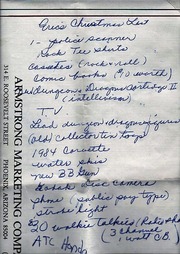 Eric's Christmas List
1- police scanner
Rock Tee Shirts
Cassettes (rock + roll)
Comic books ( worth)
Dungeons & Dragons Cartridge II
(intellivision)
T.V.
Lead dungeon + dragon figures
(old) collector ten toys
1984 Corvette
water skis
new BB Gun
Kodak Disc Camera
phone (public pay type)
strobe light
walkie talkies (Radio Shack)
(3 channel
1 watt C.B.)
ATC Honda
ARMSTRONG MARKETING COMP
314 E. ROOSEVELT STREET
PHOENIX, ARIZONA 85004